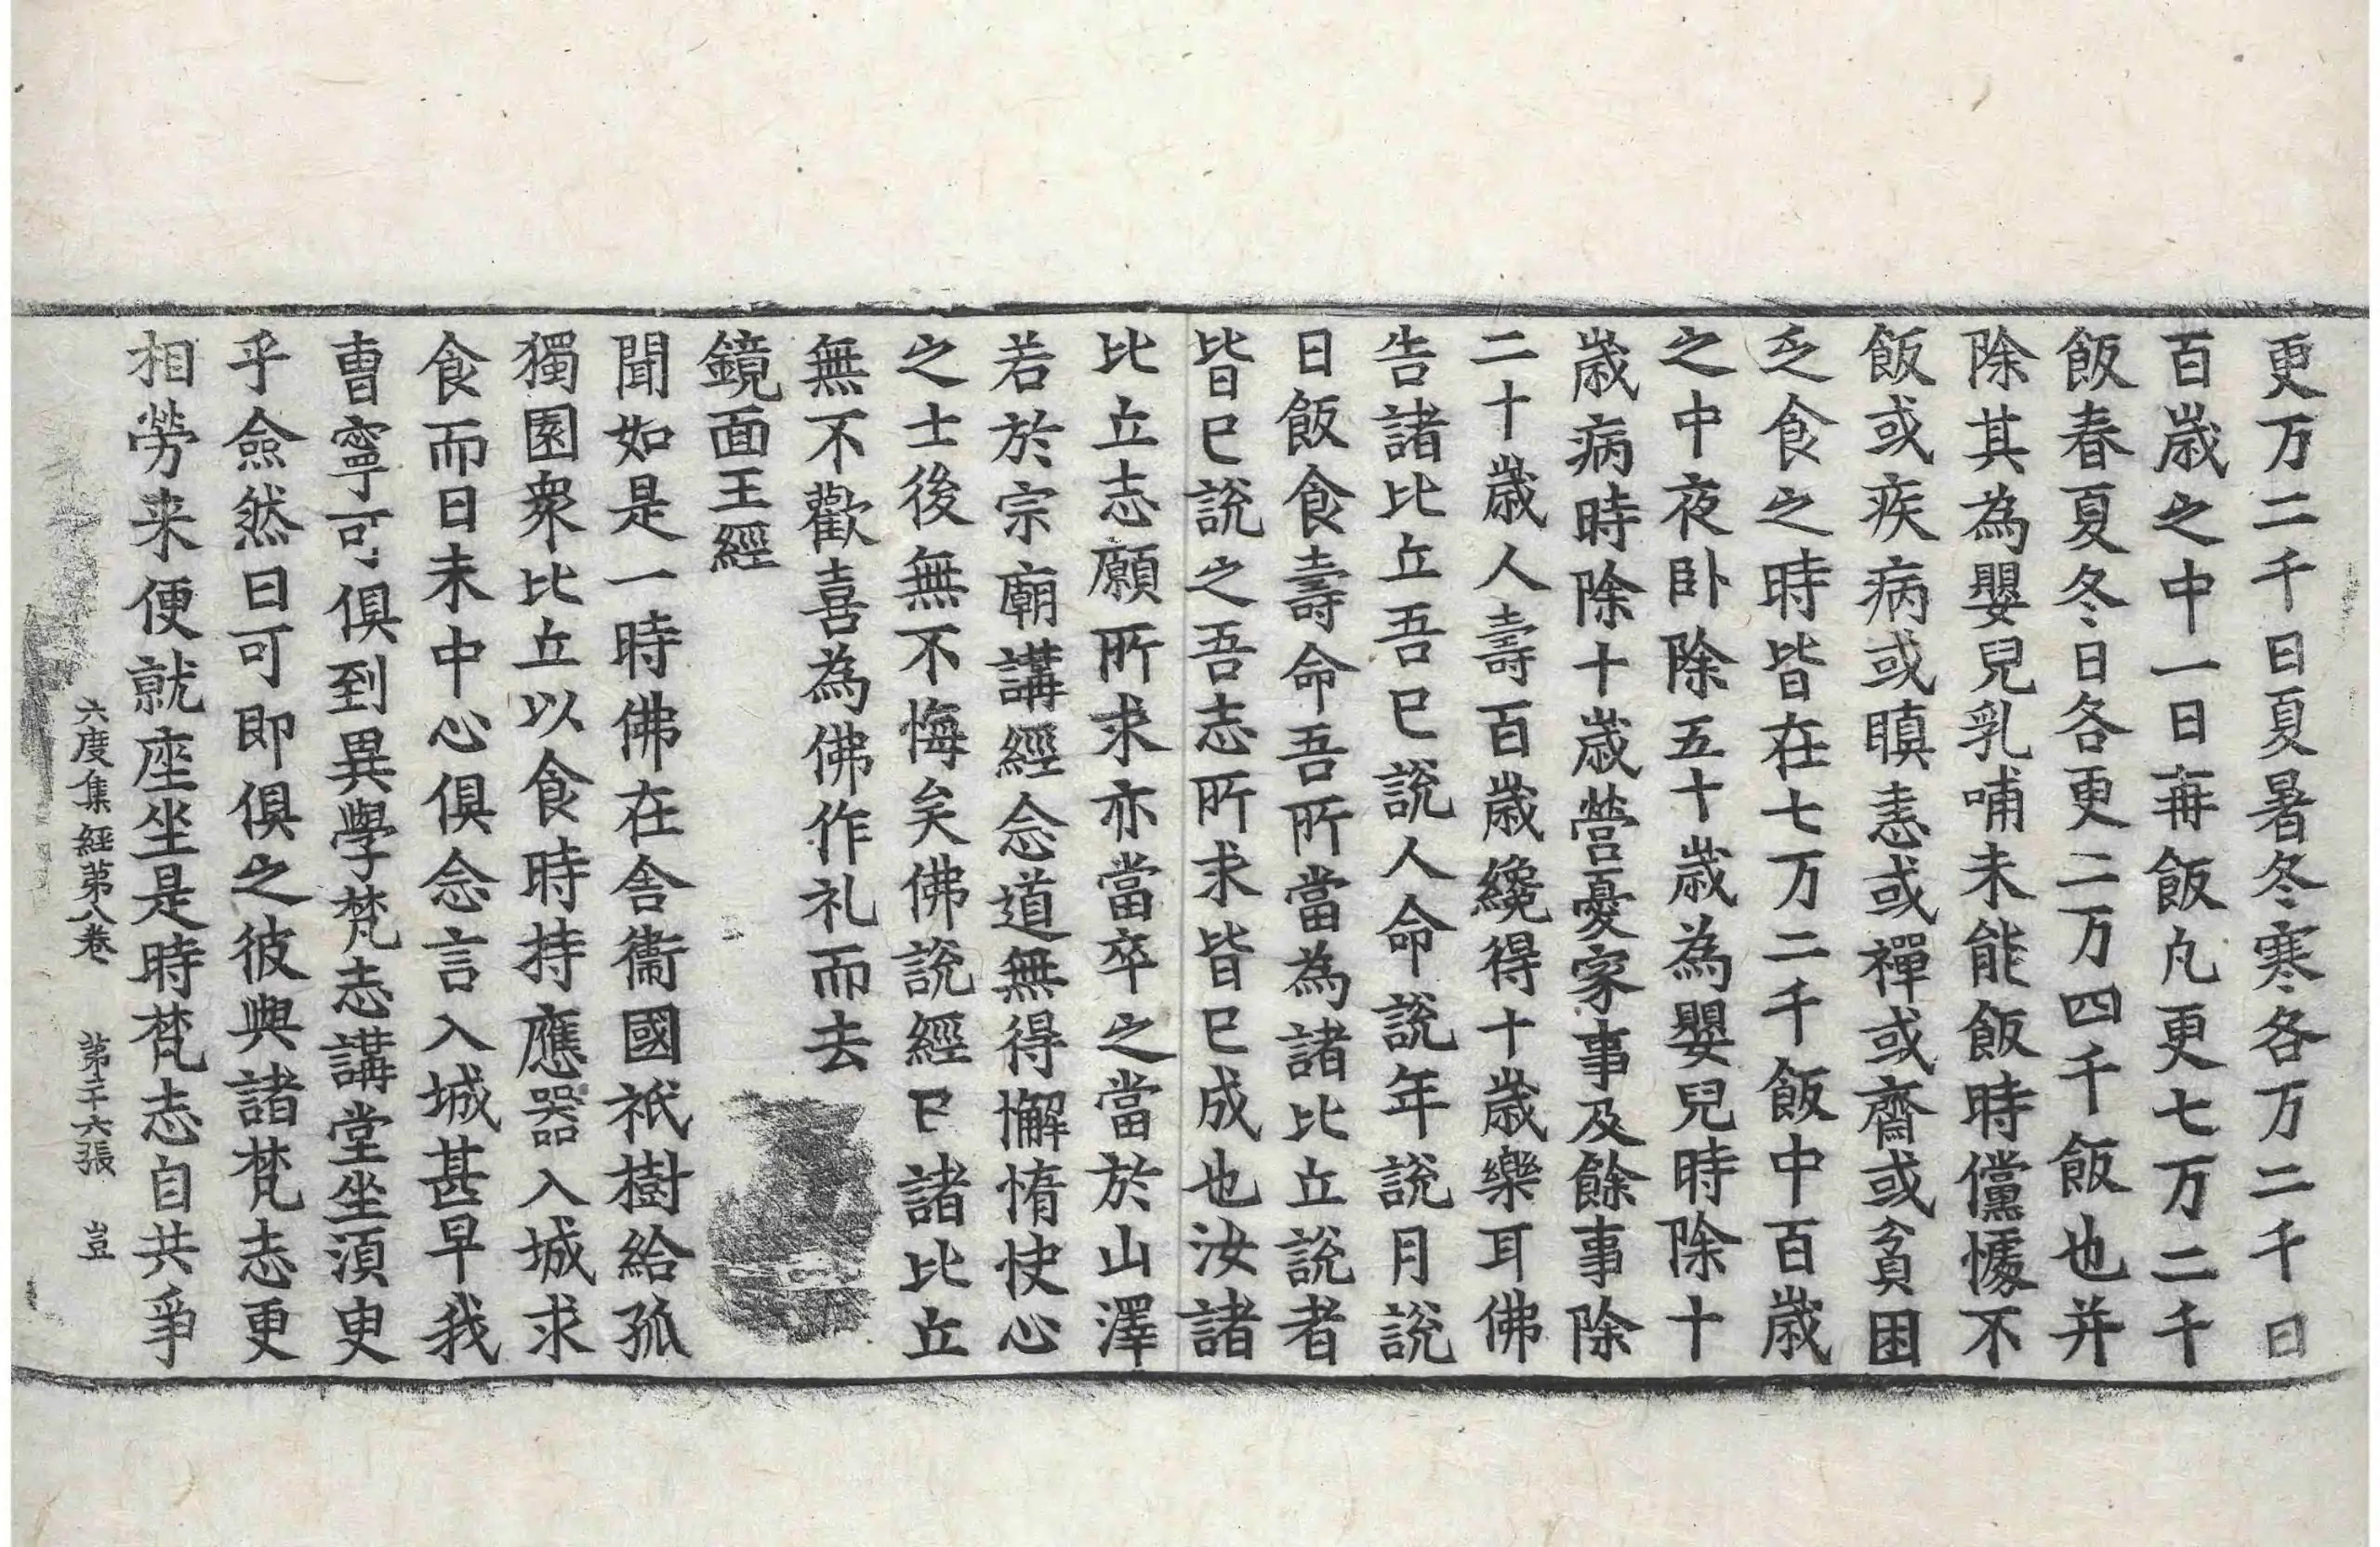 更万二千日夏暑冬寒各万二千日
百歲之中一日再飯凡更七万二千
飯春夏冬日各更二万四千飯也并
除其為嬰兒乳哺未能飯時儻懅不
飯或疾病或瞋恚或禪或齋或貧困
乏食之時皆在七万二千飯中百歲
之中夜卧除五十歲為嬰兒時除十
歲病時除十歲營憂家事及餘事除
二十歲人壽百歲纔得十歲樂耳佛
告諸比丘吾已說人命說年說月說
日飯食壽命吾所當為諸比丘說者
皆已說之吾志所求皆已成也汝諸
比丘志願所求亦當卒之當於山澤
若於宗廟講經念道無得懈惰快心
之士後無不悔矣佛說經已諸比丘
無不歡喜為佛作礼而去
鏡面王經
聞如是一時佛在舍衞國祇樹給孤
獨園衆比丘以食時持應器入城求
食而日未中心俱念言入城甚早我
曹寧可俱到異學梵志講堂坐須臾
乎僉然曰可即俱之彼與諸梵志更
相勞来便就座坐是時梵志自共爭
六度集經第八卷 第二十六張 豈